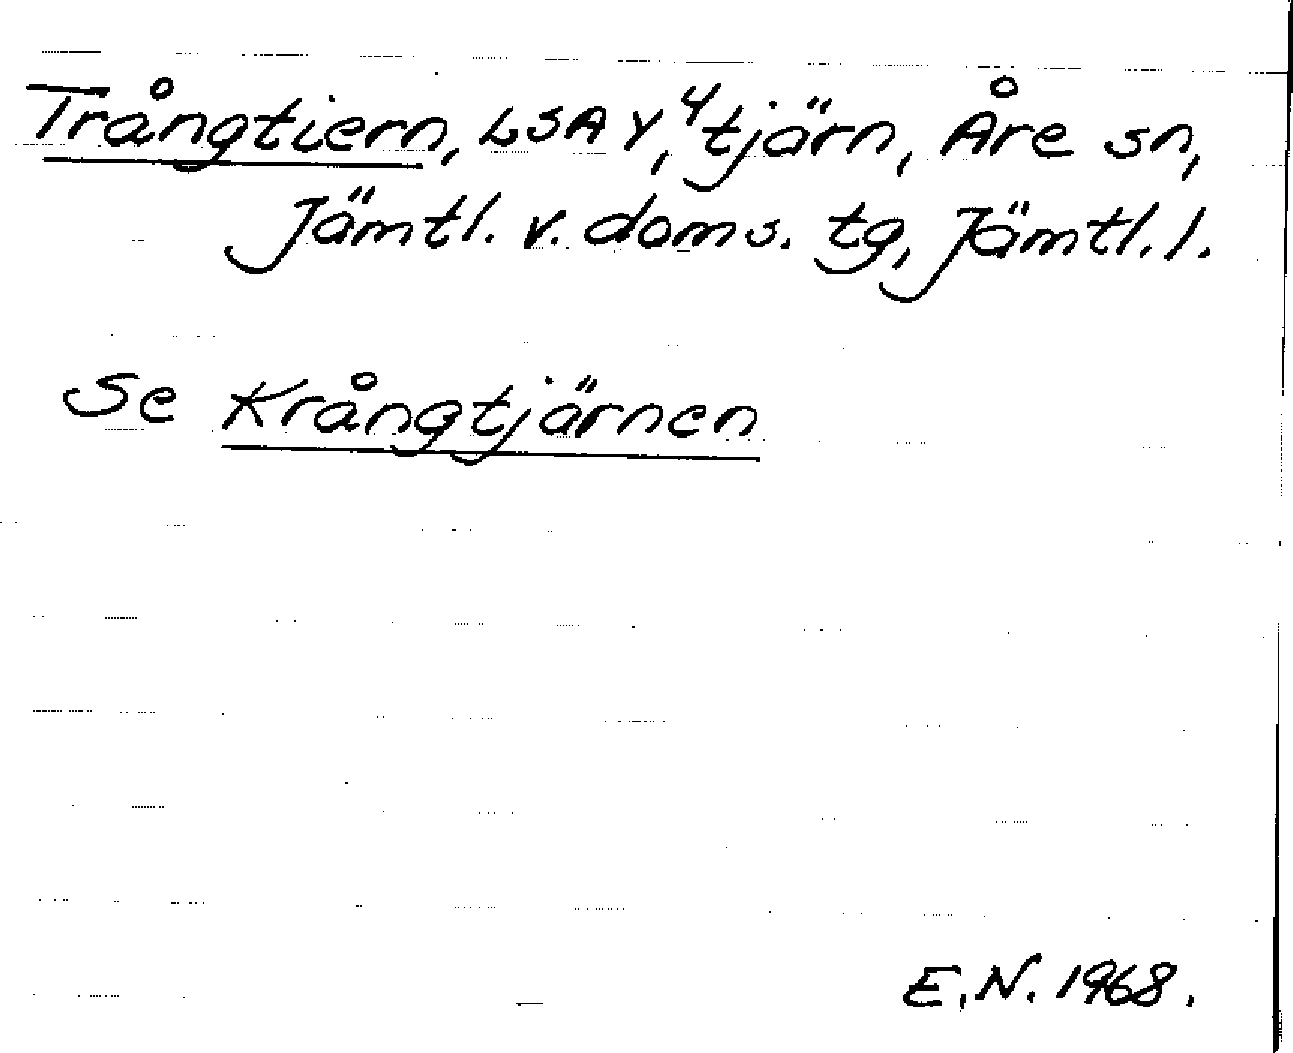 Trångtiern, LSA Y⁴, tjärn, Åre sn,
Jämtl. v. doms. tg, Jämtl. l.
Se Krångtjärnen
E.N. 1968.